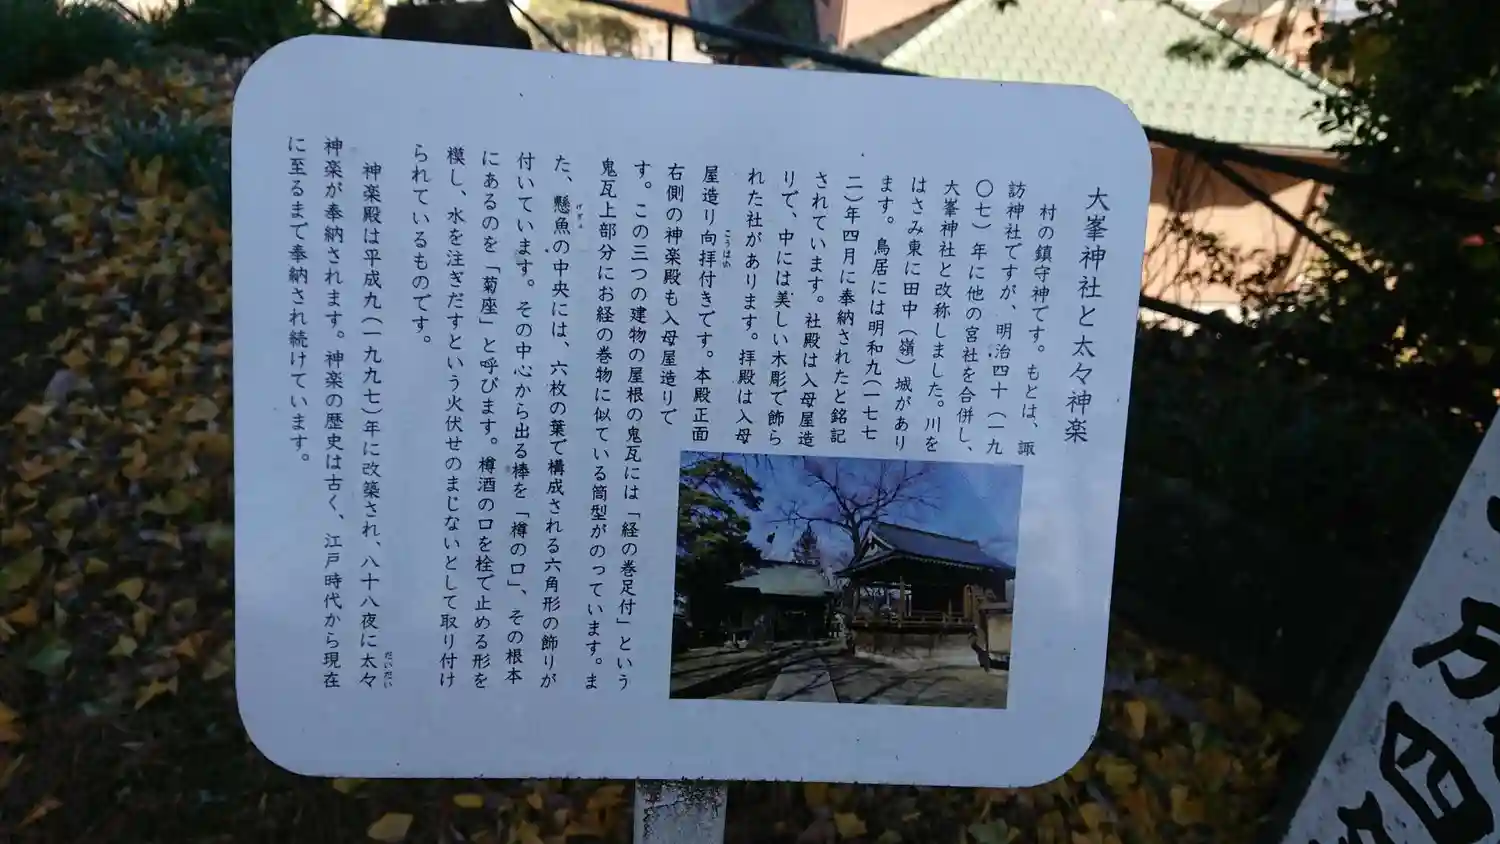 大峯神社と太々神楽
村の鎮守神です。もとは、諏
訪神社ですが、明治四十(一九
〇七)年に他の宮社を合併し、
大峯神社と改称しました。川を
はさみ東に田中(嶺)城があり
ます。鳥居には明和九(一七七
二)年四月に奉納されたと銘記
されています。社殿は入母屋造
りで、中には美しい木彫で飾ら
れた社があります。拝殿は入母
屋造り向拝付きです。本殿正面
こうはい
右側の神楽殿も入母屋造りで
す。この三つの建物の屋根の鬼瓦には「経の巻足付」という
鬼瓦上部分にお経の巻物に似ている筒型がのっています。ま
た、懸魚の中央には、六枚の葉で構成される六角形の飾りが
げぎょ
付いています。その中心から出る棒を「樽の口」、その根本
にあるのを「菊座」と呼びます。樽酒の口を栓で止める形を
模し、水を注ぎだすという火伏せのまじないとして取り付け
られているものです。
神楽殿は平成九(一九九七)年に改築され、八十八夜に太々
だいだい
神楽が奉納されます。神楽の歴史は古く、江戸時代から現在
に至るまで奉納され続けています。